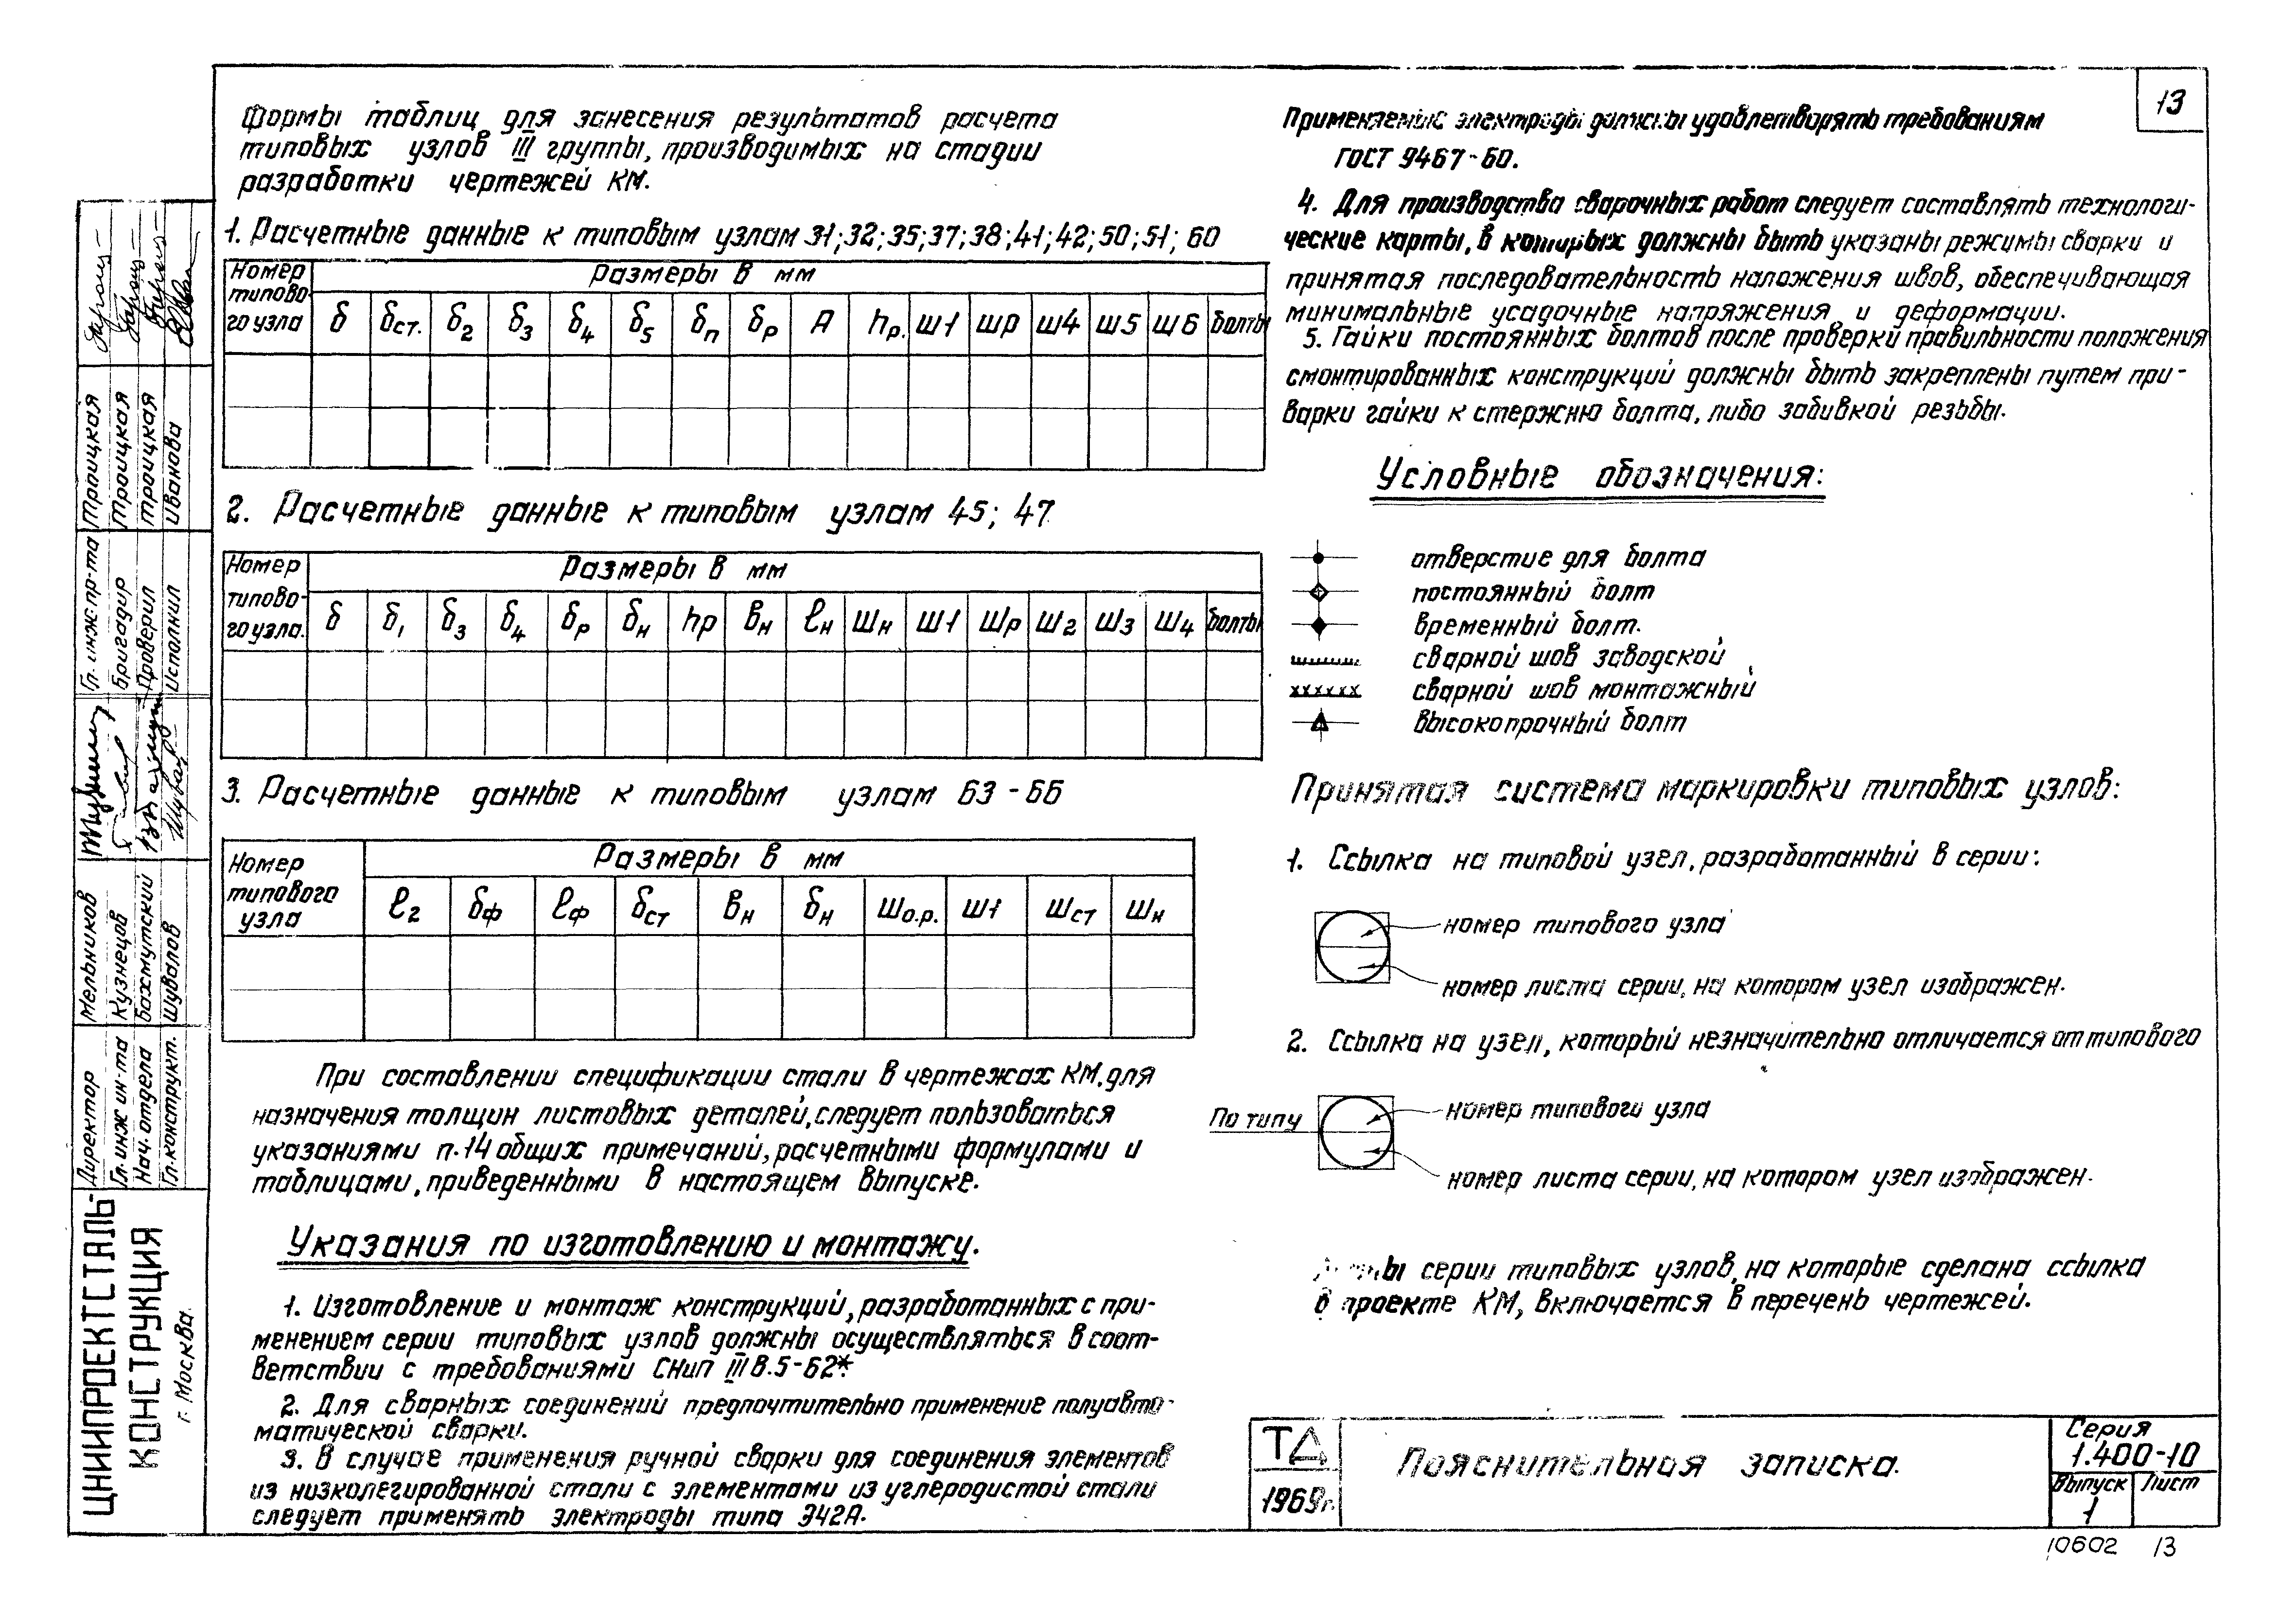 13
Формы таблиц для занесения результатов расчета
типовых узлов III группы, производимых на стадии
разработки чертежей КМ.
1. Расчетные данные к типовым узлам 31; 32; 35; 37; 38; 41; 42; 50; 51; 60
Номер типово-го узла
Размеры в мм
δ δст. δ2 δ3 δ4 δ5 δп δр А hр. ш1 шр ш4 ш5 ш6 болты
2. Расчетные данные к типовым узлам 45; 47
Номер типово-го узла.
Размеры в мм
δ δ1 δ3 δ4 δр δн hр вн ℓн шн ш1 шр ш2 ш3 ш4 болты
3. Расчетные данные к типовым узлам 63 - 66
Номер типового узла
Размеры в мм
ℓ2 δф ℓф δст вн δн шо.р. ш1 шст шн
При составлении спецификации стали в чертежах КМ, для
назначения толщин листовых деталей, следует пользоваться
указаниями п.14 общих примечаний, расчетными формулами и
таблицами, приведенными в настоящем выпуске.
Указания по изготовлению и монтажу.
1. Изготовление и монтаж конструкций, разработанных с при-
менением серии типовых узлов должны осуществляться в соот-
ветствии с требованиями СНиП III В.5-62*
2. Для сварных соединений предпочтительно применение полуавто-
матической сварки.
3. В случае применения ручной сварки для соединения элементов
из низколегированной стали с элементами из углеродистой стали
следует применять электроды типа Э42А.
Применяемые электроды должны удовлетворять требованиям
ГОСТ 9467-60.
4. Для производства сварочных работ следует составлять технологи-
ческие карты, в которых должны быть указаны режимы сварки и
принятая последовательность наложения швов, обеспечивающая
минимальные усадочные напряжения и деформации.
5. Гайки постоянных болтов после проверки правильности положения
смонтированных конструкций должны быть закреплены путем при-
варки гайки к стержню болта, либо забивкой резьбы.
Условные обозначения:
отверстие для болта
постоянный болт
временный болт.
сварной шов заводской
сварной шов монтажный
высокопрочный болт
Принятая система маркировки типовых узлов:
1. Ссылка на типовой узел, разработанный в серии:
номер типового узла
номер листа серии, на котором узел изображен.
2. Ссылка на узел, который незначительно отличается от типового
По типу
номер типового узла
номер листа серии, на котором узел изображен.
серии типовых узлов, на которые сделана ссылка
в проекте КМ, включается в перечень чертежей.
ТД
1969г.
Пояснительная записка.
Серия
1.400-10
Выпуск Лист
1
10602 13
ЦНИИПРОЕКТСТАЛЬ-
КОНСТРУКЦИЯ
г. Москва.
Директор Мельников
Гл. инж ин-та Кузнецов
Нач. отдела Бахмутский
Гл. конструкт. Шувалов
Гл. инж. пр-та Троицкая
Бригадир Троицкая
Проверил Троицкая
Исполнил Иванова